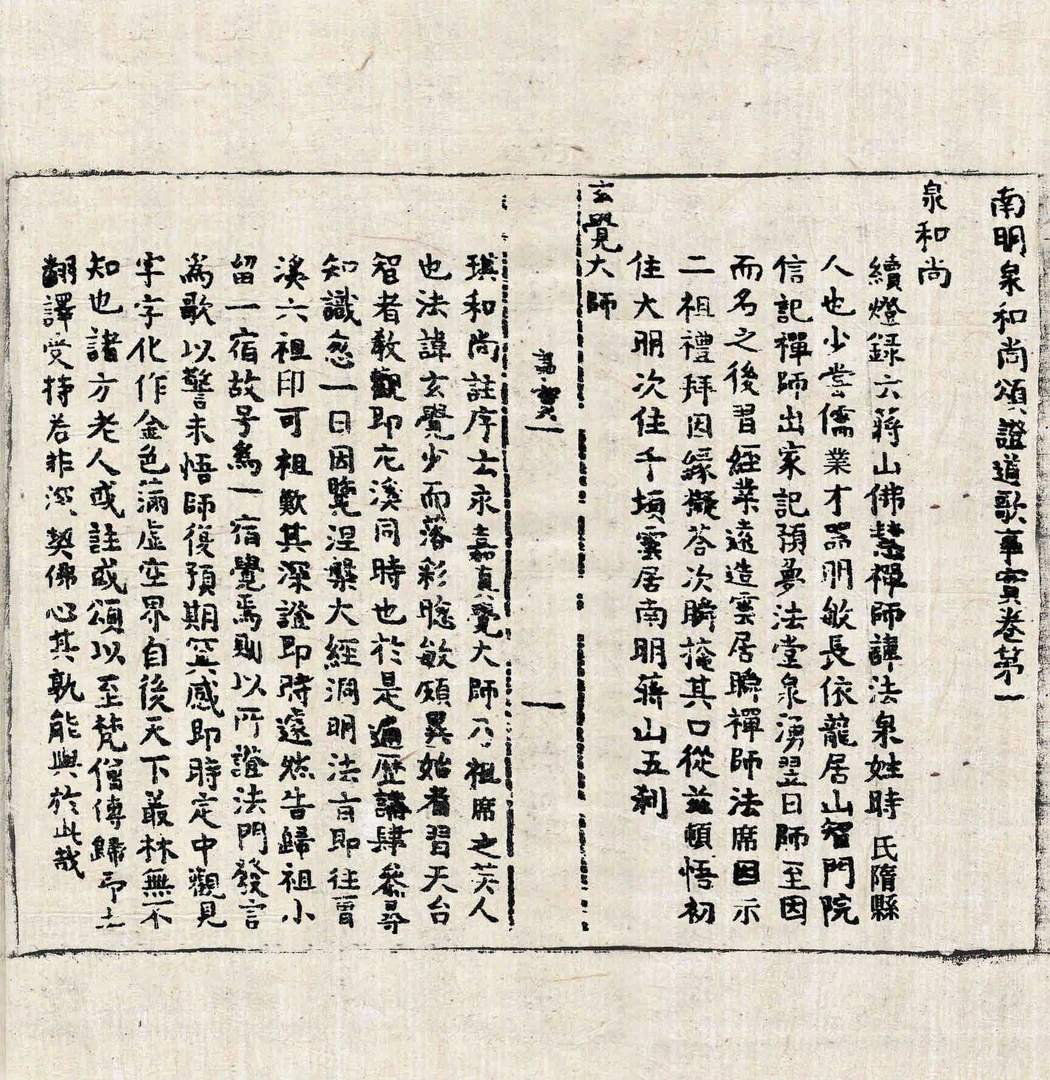 南明泉和尚頌證道歌事實卷第一
泉和尚
續燈録六蔣山佛慧禪師諱法泉姓時氏隋縣
人也少尝儒業才器明敏長依龍居山智門院
信記禪師出家記預夢法堂泉湧翌日師至因
而名之後習經業遠造雲居曉禪師法席因示
二祖禮拜因緣擬荅次瞬掩其口從兹頓悟初
住大明次住千頃雲居南明蔣山五刹
玄覺大師
琪和尚註序云永嘉真覺大師乃祖席之英人
也法諱玄覺少而落彩聦敏頗異始者習天台
智者教觀即左溪同時也於是遍歴講肆叅尋
知識忽一日因覽涅槃大經洞明法言即往曹
溪六祖印可祖歎其深證即時遽然告歸祖小
留一宿故号爲一宿覺焉則以所證法門發言
爲歌以警未悟師復預期冥感即時定中觀見
字字化作金色滿虚空界自後天下叢林無不
知也諸方老人或註或頌以至梵僧傳歸印土
翻譯受持若非深契佛心其孰能與於此哉
一